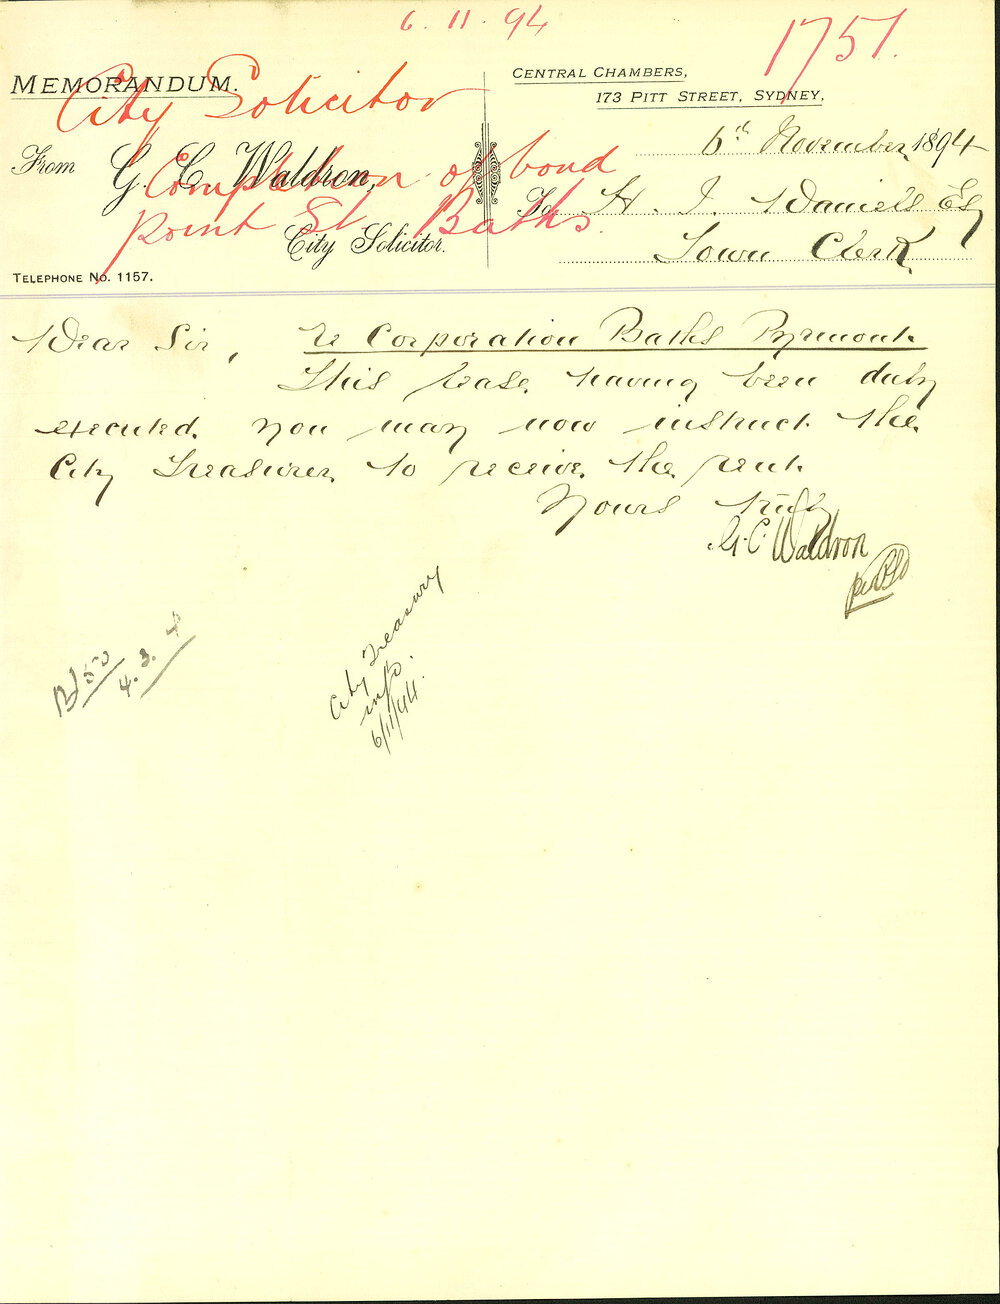 6.11.94
1751.
MEMORANDUM.
CENTRAL CHAMBERS,
173 PITT STREET, SYDNEY,
City Solicitor
6th November 1894
From G. C. Waldron,
City Solicitor.
Completion of bond
Point St Baths.
To H. J. Daniels Esq
Town Clerk
TELEPHONE No. 1157.
Dear Sir, re Corporation Baths Pyrmont
This lease having been duly
executed you may now instruct the
City Treasurer to receive the rent
Yours truly
G. C. Waldron
City Treasury
info.
6/11/94.
4.3.